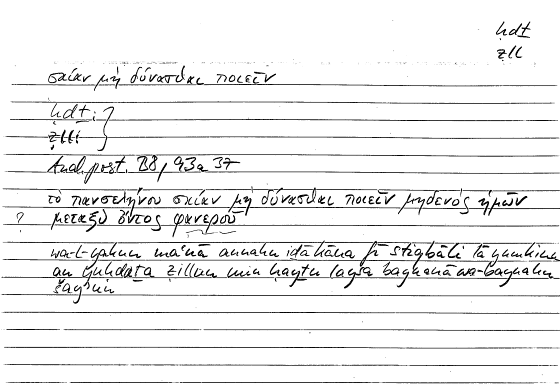 ḥdṯ
ẓll
σκίαν μὴ δύνασθαι ποιεῖν
ḥdṯ: }
ẓll:
Anal. post. B8, 93a 37
τὸ πανσελήνου σκίαν μὴ δύνασθαι ποιεῖν μηδενὸς ἡμῶν
? μεταξὺ ὄντος φανεροῦ
wa-l-yakun maʿnā annahu iḏā kāna fī stiqbāli lā yumkinu
an yuḥdaṯa ẓillun min ḥayṯu laysa baynanā wa-baynahu
šayʾun